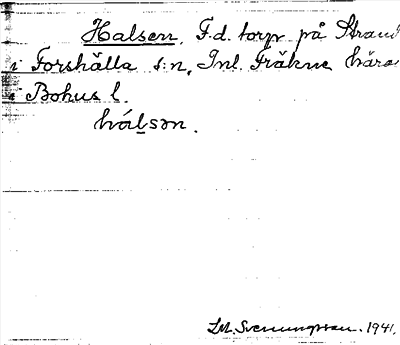 Halsen. F.d. torp på Strand
i Forshälla s:n, Inl. Fräkne härad
i Bohus l.
hálsən.
LM. Svenungsson. 1941.